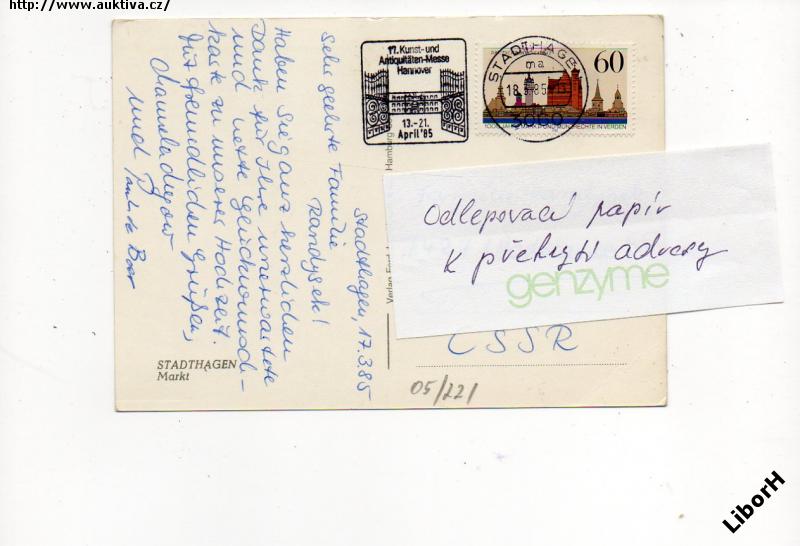 http://www.auktiva.cz/
17. Kunst-und
Antiquitäten-Messe
Hannover
13.-21.
April '85
STADTHAGEN
ma
18.3.85-13
3060
60
IN VERDEN
Stadthagen, 17.3.85
Sehr geehrte Familie
Randysek!
Haben Sie ganz herzlichen
Dank für Ihre unerwartete
und nette Glückwunsch-
karte zu unserer Hochzeit.
Mit freundlichen Grüßen,
und
STADTHAGEN
Markt
Hamburg
Odlepovací papír
k překrytí adresy
genzyme
ČSSR
05/221
LiborH